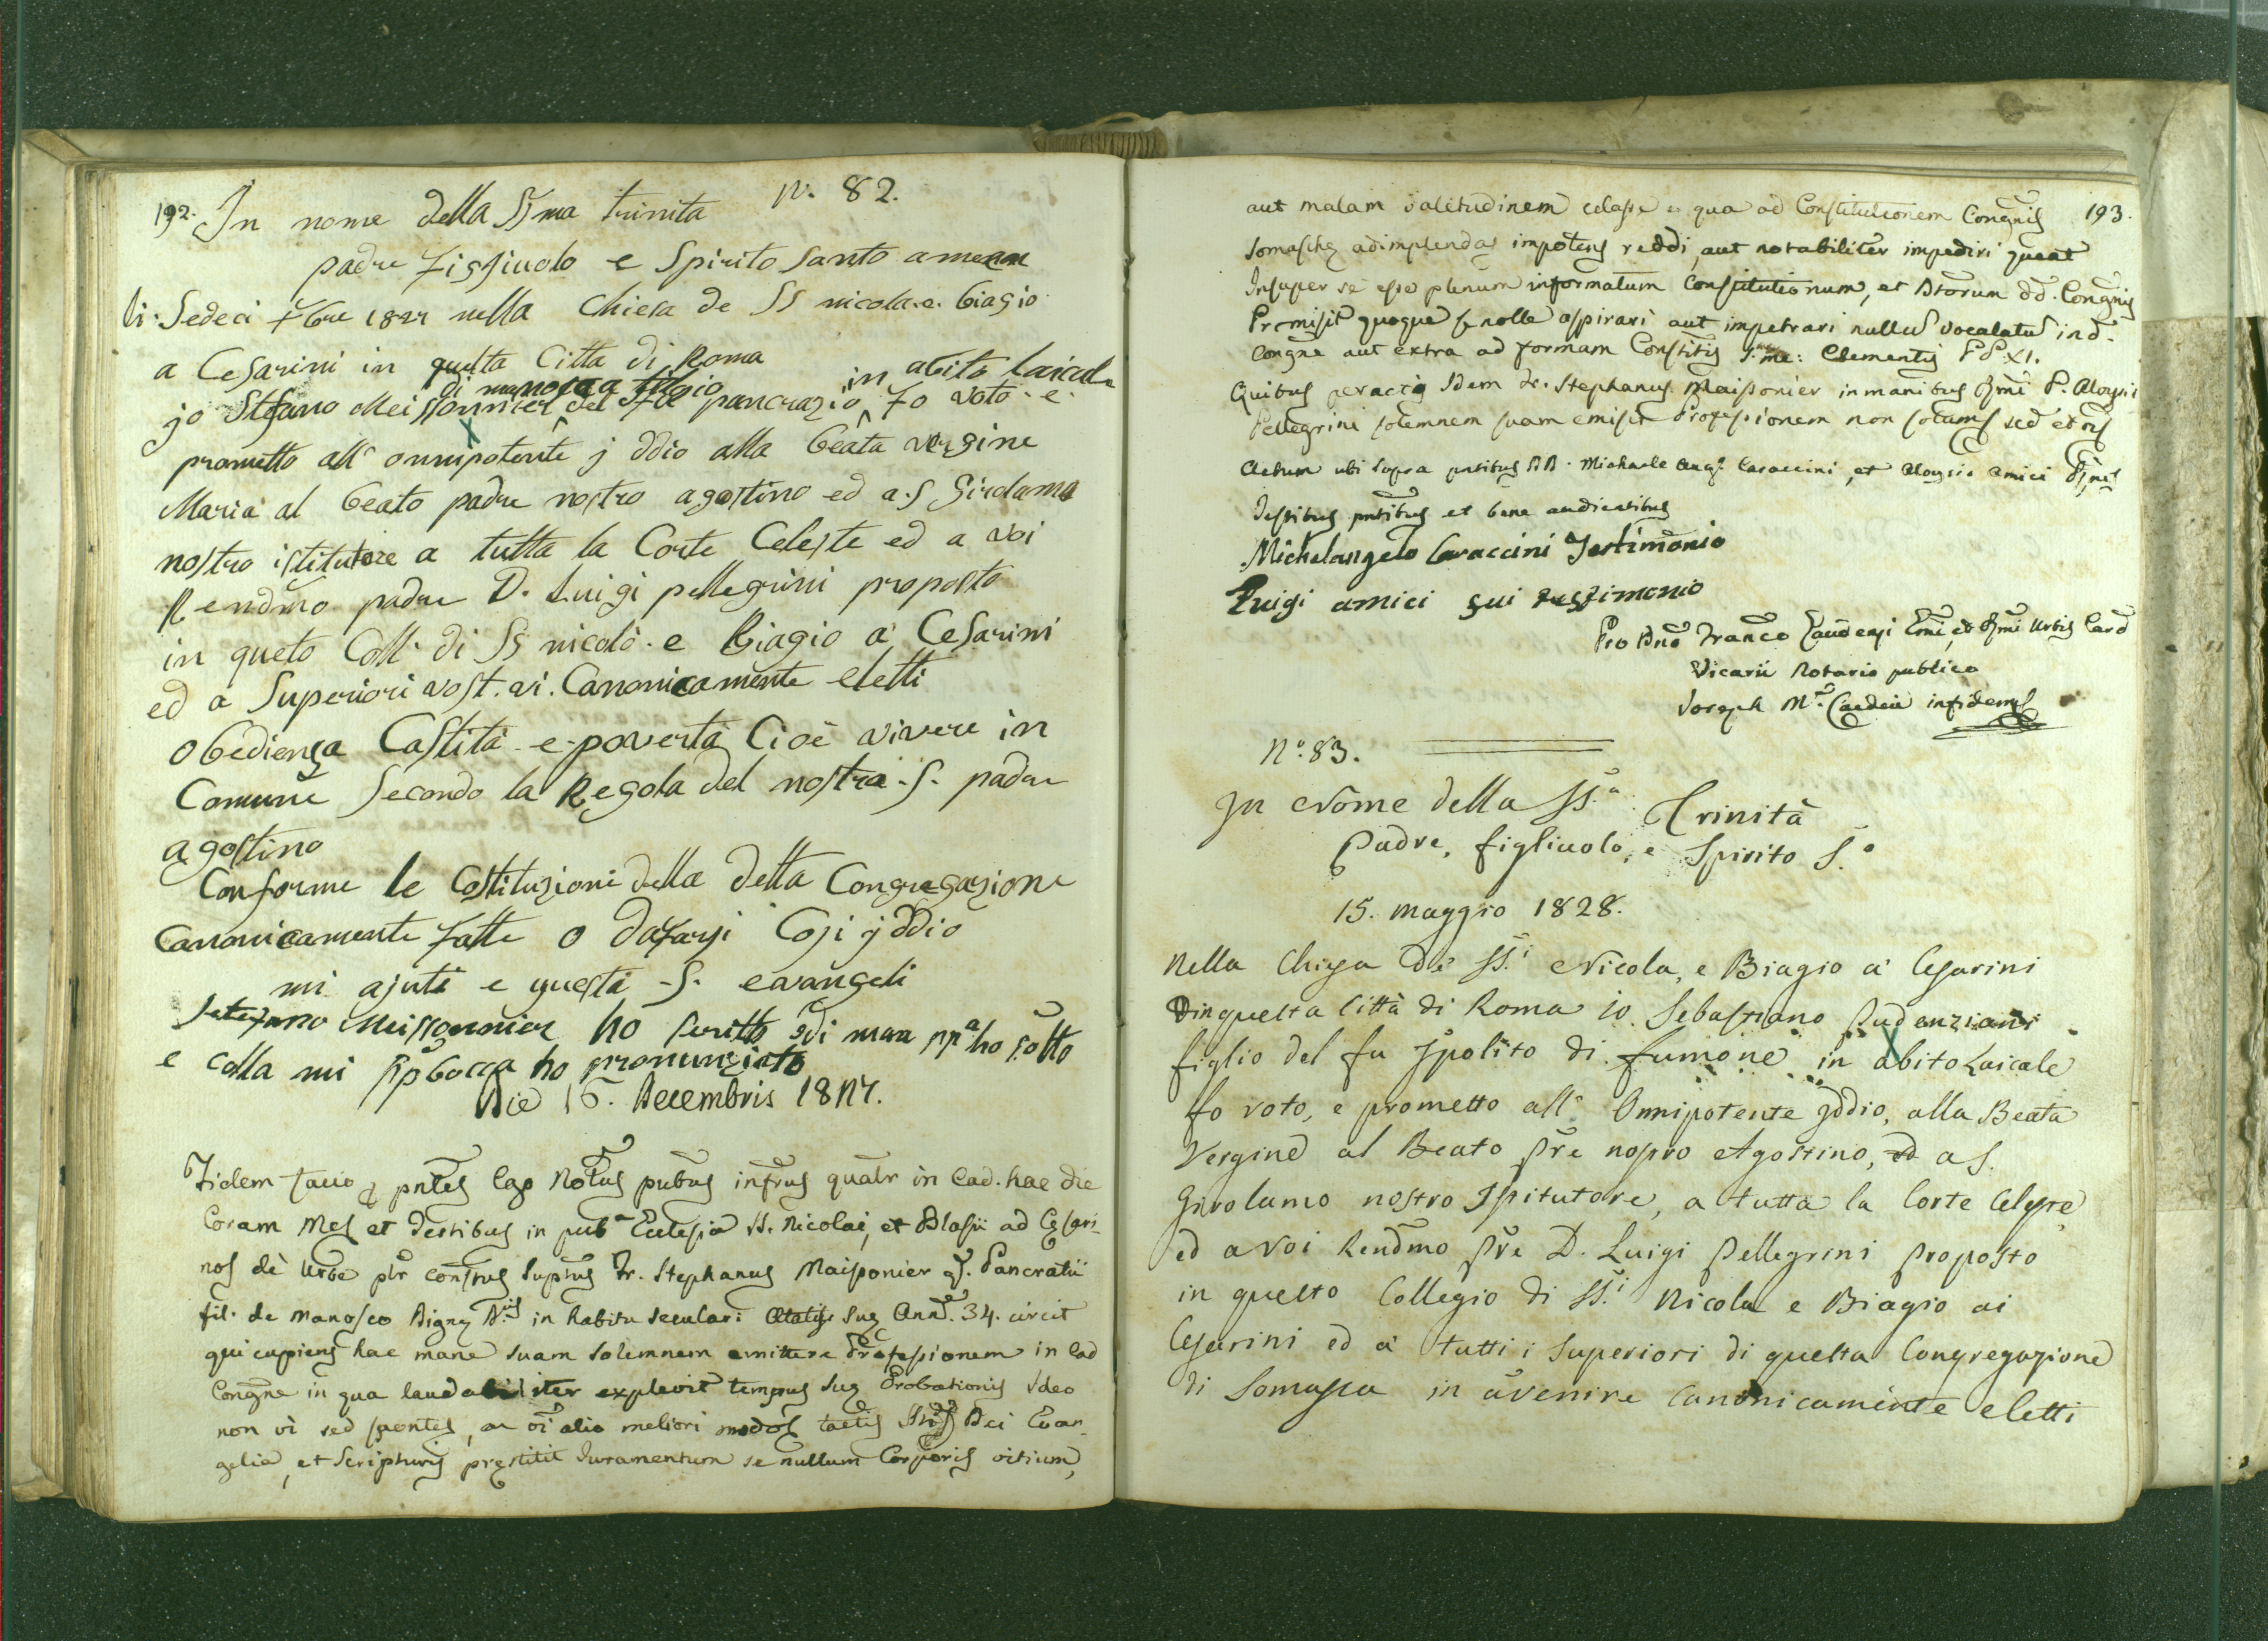 192. In nome della SSma trinita N. 82.
padre Figljuolo e Spirito Santo amenn
li. Sedeci Xbre 1827 nella Chiesa de SS nicola e. biagio
a Cesarini in questa Citta di Roma
di manosca in abito laicale
jo Stefano Meissonnier del pancrazio, Fo voto e
prometto all' onnipotente j ddio alla beata vergine
Maria al beato padre nostro agostino ed a. S Girolamo
nostro istitutore a tutta la Corte Celeste ed a voi
Rendmo padre D. Luigi pellegrini proposto
in queto Coll. di SS nicolò e Biagio a' Cesarini
ed a Superiori vost. vi. Canonicamente eletti
Obedienza Castità e poverta Cioè vivere in
Comune Secondo la Regola del nostra S. padre
agostino
Conforme le Costituzioni della detta Congregazione
Canonicamente fatte o dafarsi Cosi jddio
mi ajuti e questi S. evangeli
Stefano Meissonnier ho scritto di man ppa ho sotto
e colla mi ppbocca ho pronunziato
Die 16. Decembris 1827.
Fidem facio pntes Ego Notus pubus infrus qualr in Ead. hac die
Coram Me et Testibus in puba Eclesia SS. Nicolai, et Blasii ad Cesari-
nos de Urbe plr constus Suptus Fr. Stephanus Maisonier q. Pancratii
fil. de Manosco in habitu seculari Ætatis suæ Ann. 34. circit
qui cupiens hac mane suam solemnem emittere Professionem in Ead
Congne in qua laudabiliter explevit tempus suæ Probationis Ideo
non vi sed sponte, ac oi alio meliori modo tactis Dei Evan-
gelia, et Scripturis prestitit Juramentum se nullum Corporis vitium,
aut malam valitudinem celasse qua ad Constitutionem Congnis 193.
Somasche adimplendas impotens reddi, aut notabiliter impediri queat
Insuper se esse plenum informatum Constitutionum, et Dtorum dd. Congnis
Promisit quoque se nolle aspirari aut impetrari nullu vocalatu in d.
Congne aut extra ad formam Constitis S. me: Clementis PP XI.
Quibus peractis Idem Fr. Stephanus Maissonier in manibus Rmi P. Aloysii
Pellegrini solemnem suam emisit Professionem non solum sed et oi
Actum ubi supra pntibus DD. Michaele Ango. Caraccini, et Aloysio Amici
Testibus pntibus et bene audientibus
Michelangelo Caraccini Testimonio
Luigi amici fui testimonio
Pro Dno Franco Gaudenzi Emi, et Rmi Urbis Card
Vicarii Notario publico
Joseph Ma. in fidem
No. 83.
In Nome della SS.a Trinità
Padre, figliuolo, e Spirito S.o
15. maggio 1828.
Nella Chiesa de' SS.i Nicola, e Biagio a' Cesarini
in questa Città di Roma io Sebastiano Pudenziani
figlio del fu Ipolito di fumone in abito Laicale
fo voto, e prometto all' Onnipotente Iddio, alla Beata
Vergine al Beato Pre nostro Agostino, ed a S.
Girolamo nostro Istitutore, a tutta la Corte Celeste,
ed a voi Rendmo Pre D. Luigi Pellegrini Proposto
in questo Collegio di SS.i Nicola e Biagio ai
Cesarini ed a' tutti i Superiori di questa Congregazione
di Somasca in avenire Canonicamente eletti